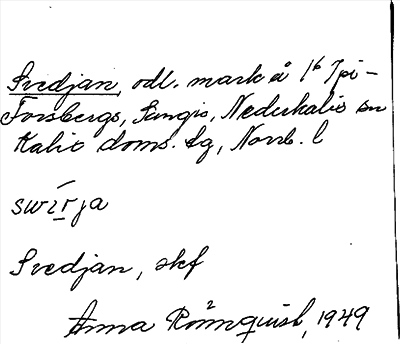 Svedjan, odl. mark å 1⁶ 7pi-
Forsbergs, Sangis, Nederkalix sn
Kalix doms. lg, Norrb. l
swírja
Svedjan, skf
Anna Rönnquist, 1949